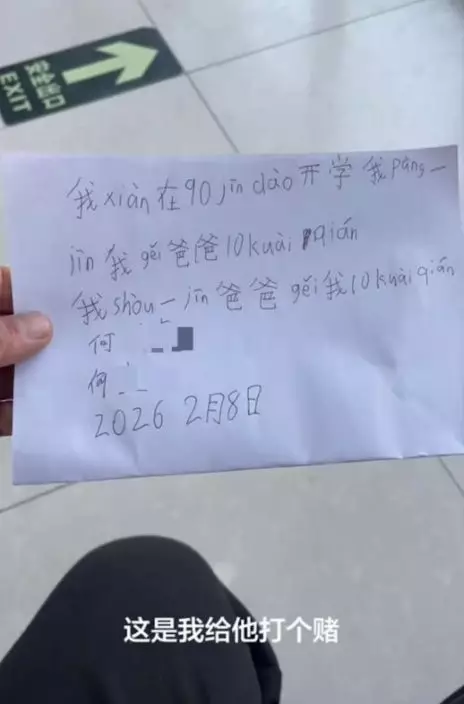 安全出口
EXIT
我xiàn在90jīn dào开学我pàng一
jīn我gěi爸爸10kuài qián
我shòu一jīn爸爸gěi我10kuài qián
何
何
2026 2月8日
这是我给他打个赌